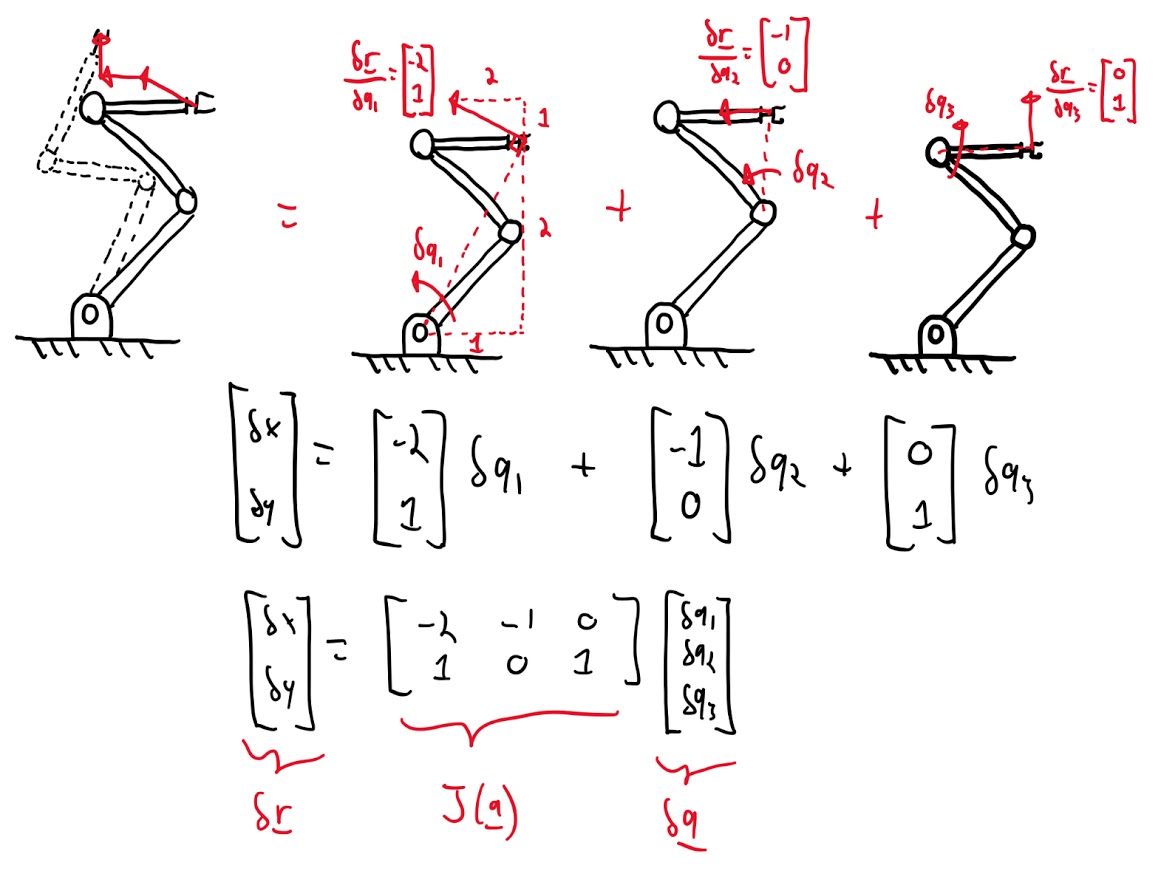 δr/δq₁ = [-2 1]
2
1
2
1
δq₁
=
+
δr/δq₂ = [-1 0]
δq₂
+
δq₃
δr/δq₃ = [0 1]
[δx δy] = [-2 1] δq₁ + [-1 0] δq₂ + [0 1] δq₃
[δx δy] = [-2 -1 0
1 0 1] [δq₁ δq₂ δq₃]
δr J(q) δq